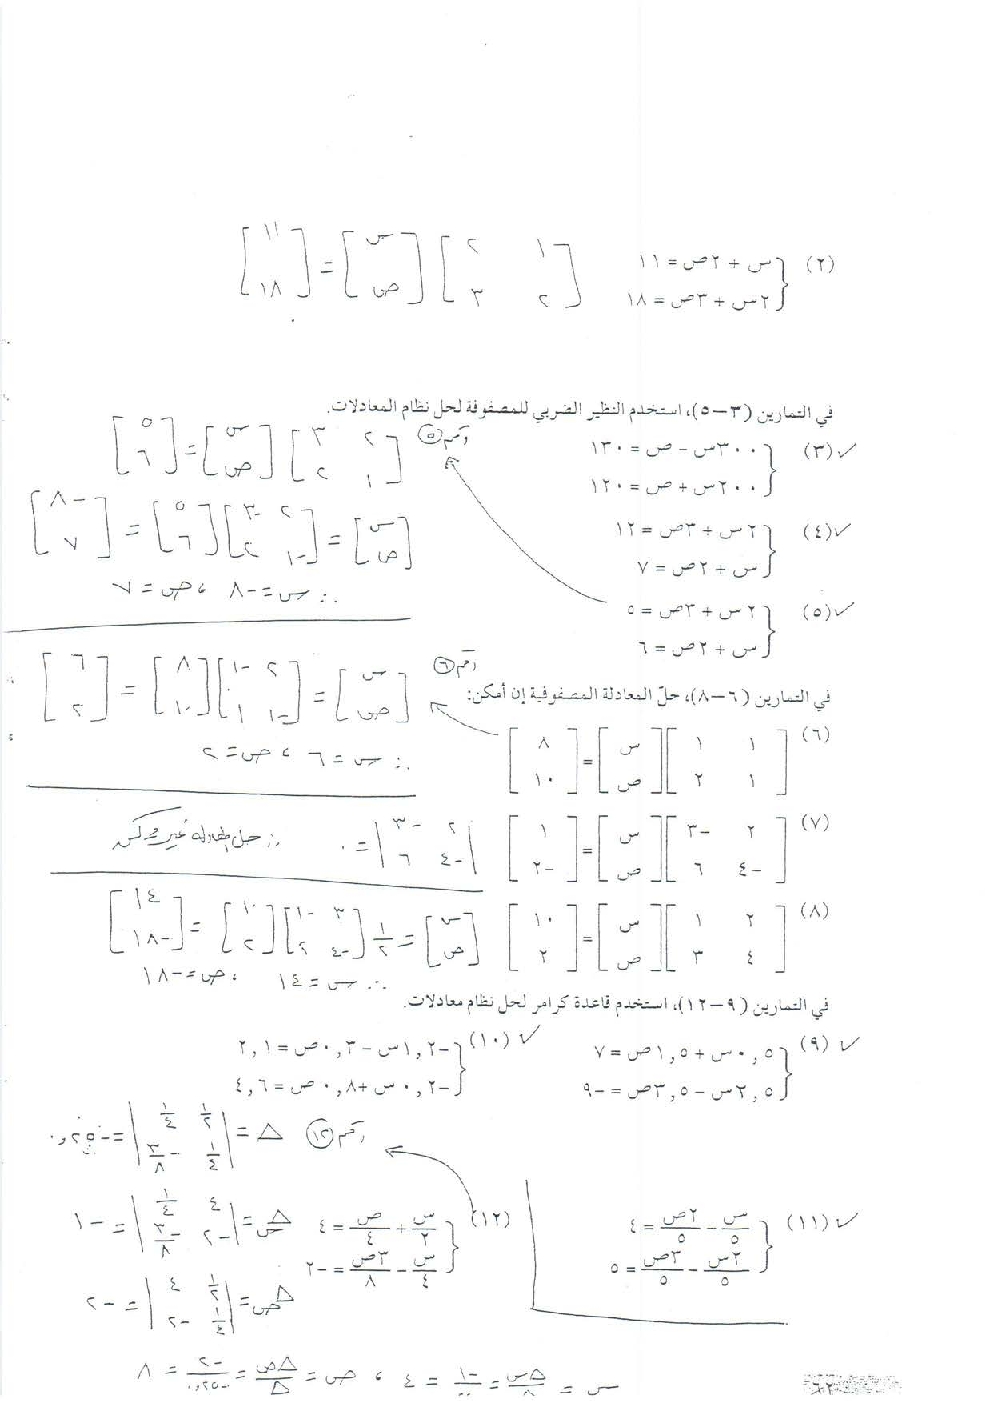 (٢) س + ٢ص = ١١
٢س + ٣ص = ١٨
[١ ٢ ; ٢ ٣] [س ; ص] = [١١ ; ١٨]
في التمارين (٣-٥)، استخدم النظير الضربي للمصفوفة لحل نظام المعادلات.
(٣) ✓ ٣٠٠س - ص = ١٣٠
٢٠٠س + ص = ١٢٠
(٤) ✓ ٢س + ٣ص = ١٢
س + ٢ص = ٧
(٥) ✓ ٢س + ٣ص = ٥
س + ٢ص = ٦
رقم ٥ [٢ ٣ ; ١ ٢] [س ; ص] = [٥ ; ٦]
[س ; ص] = [٢ -٣ ; -١ ٢] [٥ ; ٦] = [-٨ ; ٧]
∴ س = -٨ ، ص = ٧
في التمارين (٦-٨)، حلّ المعادلة المصفوفية إن أمكن:
(٦) [١ ١ ; ١ ٢] [س ; ص] = [٨ ; ١٠]
رقم ٦ [س ; ص] = [٢ -١ ; -١ ١] [٨ ; ١٠] = [٦ ; ٢]
∴ س = ٦ ، ص = ٢
(٧) [٢ -٣ ; -٤ ٦] [س ; ص] = [١ ; -٢]
|٢ -٣ ; -٤ ٦| = ٠ ∴ حل المعادلة غير ممكن
(٨) [٢ ١ ; ٤ ٣] [س ; ص] = [١٠ ; ٢]
[س ; ص] = ١/٢ [٣ -١ ; -٤ ٢] [١٠ ; ٢] = [١٤ ; -١٨]
∴ س = ١٤ ، ص = -١٨
في التمارين (٩-١٢)، استخدم قاعدة كرامر لحل نظام معادلات.
(٩) ✓ ٠,٥س + ١,٥ص = ٧
٢,٥س - ٣,٥ص = -٩
(١٠) ✓ -١,٢س - ٠,٣ص = ٢,١
-٠,٢س + ٠,٨ص = ٤,٦
(١١) ✓ س/٥ - ٢ص/٥ = ٤
٢س/٥ - ٣ص/٥ = ٥
(١٢) س/٢ + ص/٤ = ٤
س/٤ - ٣ص/٨ = -٢
رقم ١٢ Δ = |١/٢ ١/٤ ; ١/٤ -٣/٨| = -٠,٢٥
Δس = |٤ ١/٤ ; -٢ -٣/٨| = -١
Δص = |١/٢ ٤ ; ١/٤ -٢| = -٢
س = Δس/Δ = ٤ ، ص = Δص/Δ = -٢/-٠,٢٥ = ٨